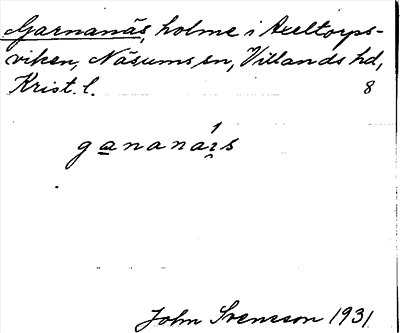 Garnanäs, holme i Axeltorps-
viken, Näsums sn, Villands hd,
Krist. l. 8
gananá̤ɪs
John Svensson 1931